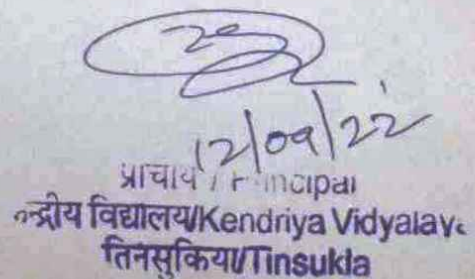 12/09/22
प्राचार्य / Principal
केन्द्रीय विद्यालय/Kendriya Vidyalaya
तिनसुकिया/Tinsukia